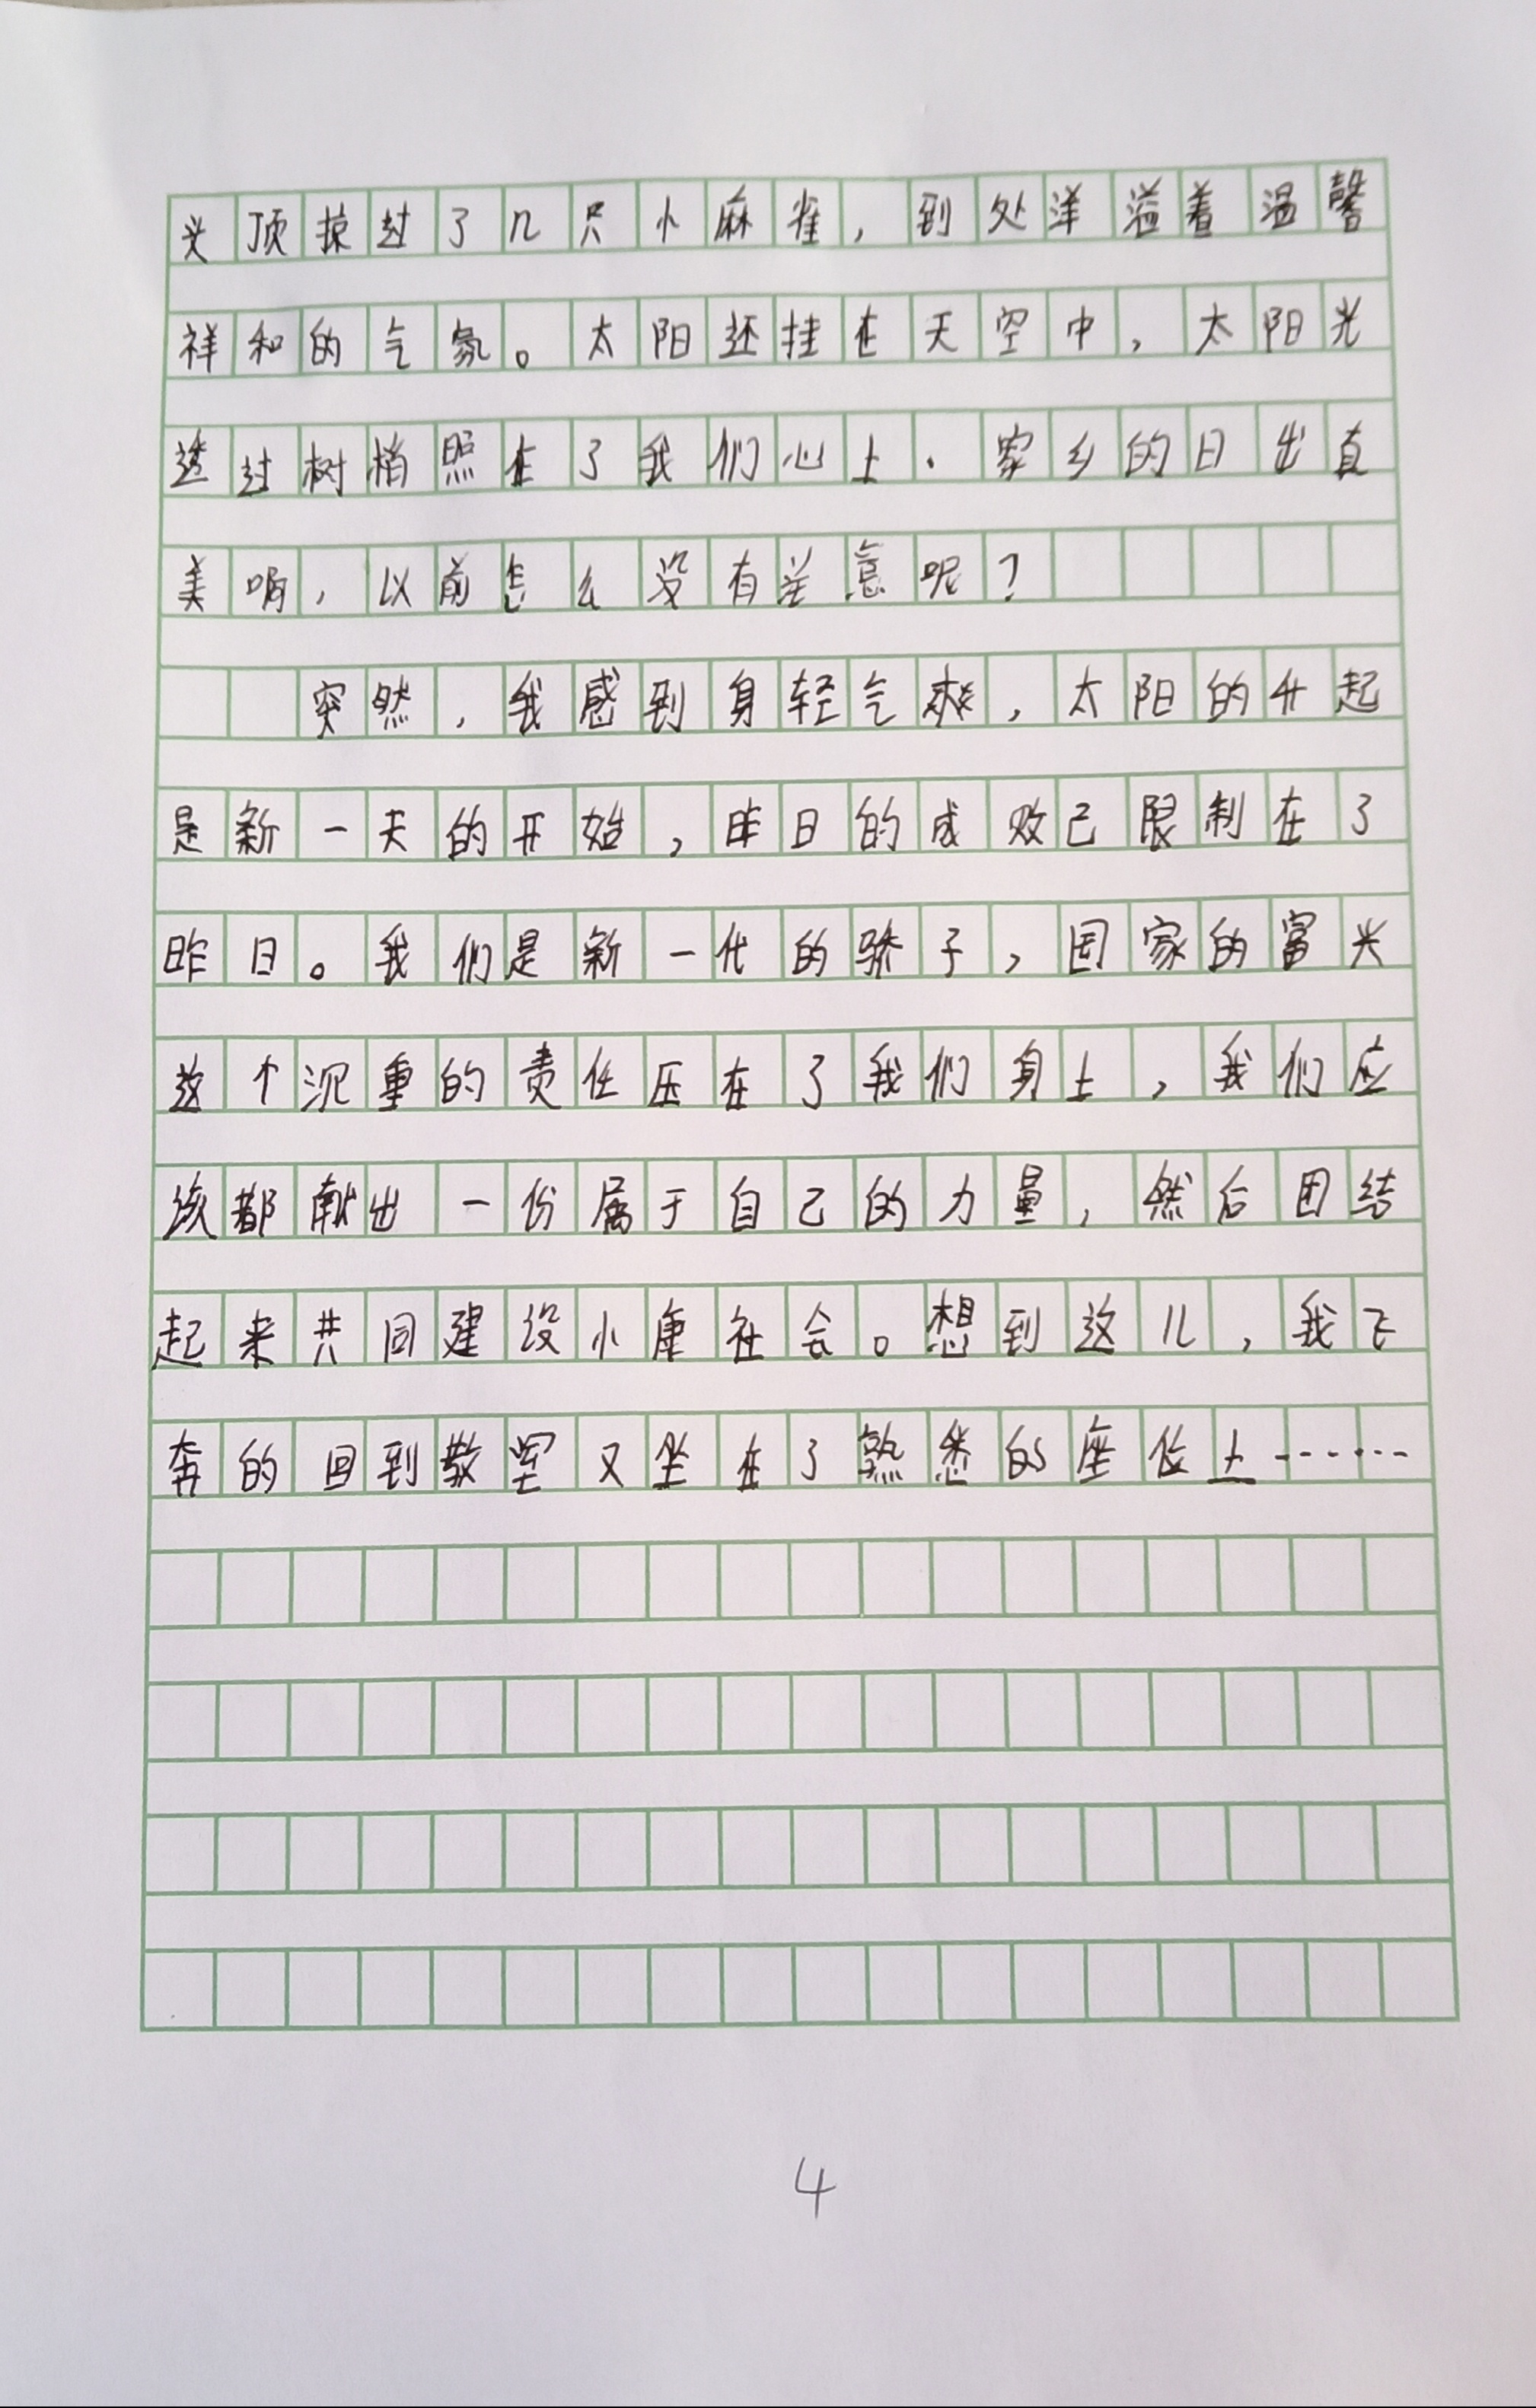 头顶掠过了几只小麻雀，到处洋溢着温馨
祥和的气氛。太阳还挂在天空中，太阳光
透过树梢照在了我们心上．家乡的日出真
美啊，以前怎么没有差意呢？
突然，我感到身轻气爽，太阳的升起
是新一天的开始，昨日的成败已限制在了
昨日。我们是新一代的骄子，国家的富兴
这个沉重的责任压在了我们身上，我们应
该都献出一份属于自己的力量，然后团结
起来共同建设小康社会。想到这儿，我飞
奔的回到教室又坐在了熟悉的座位上……
4